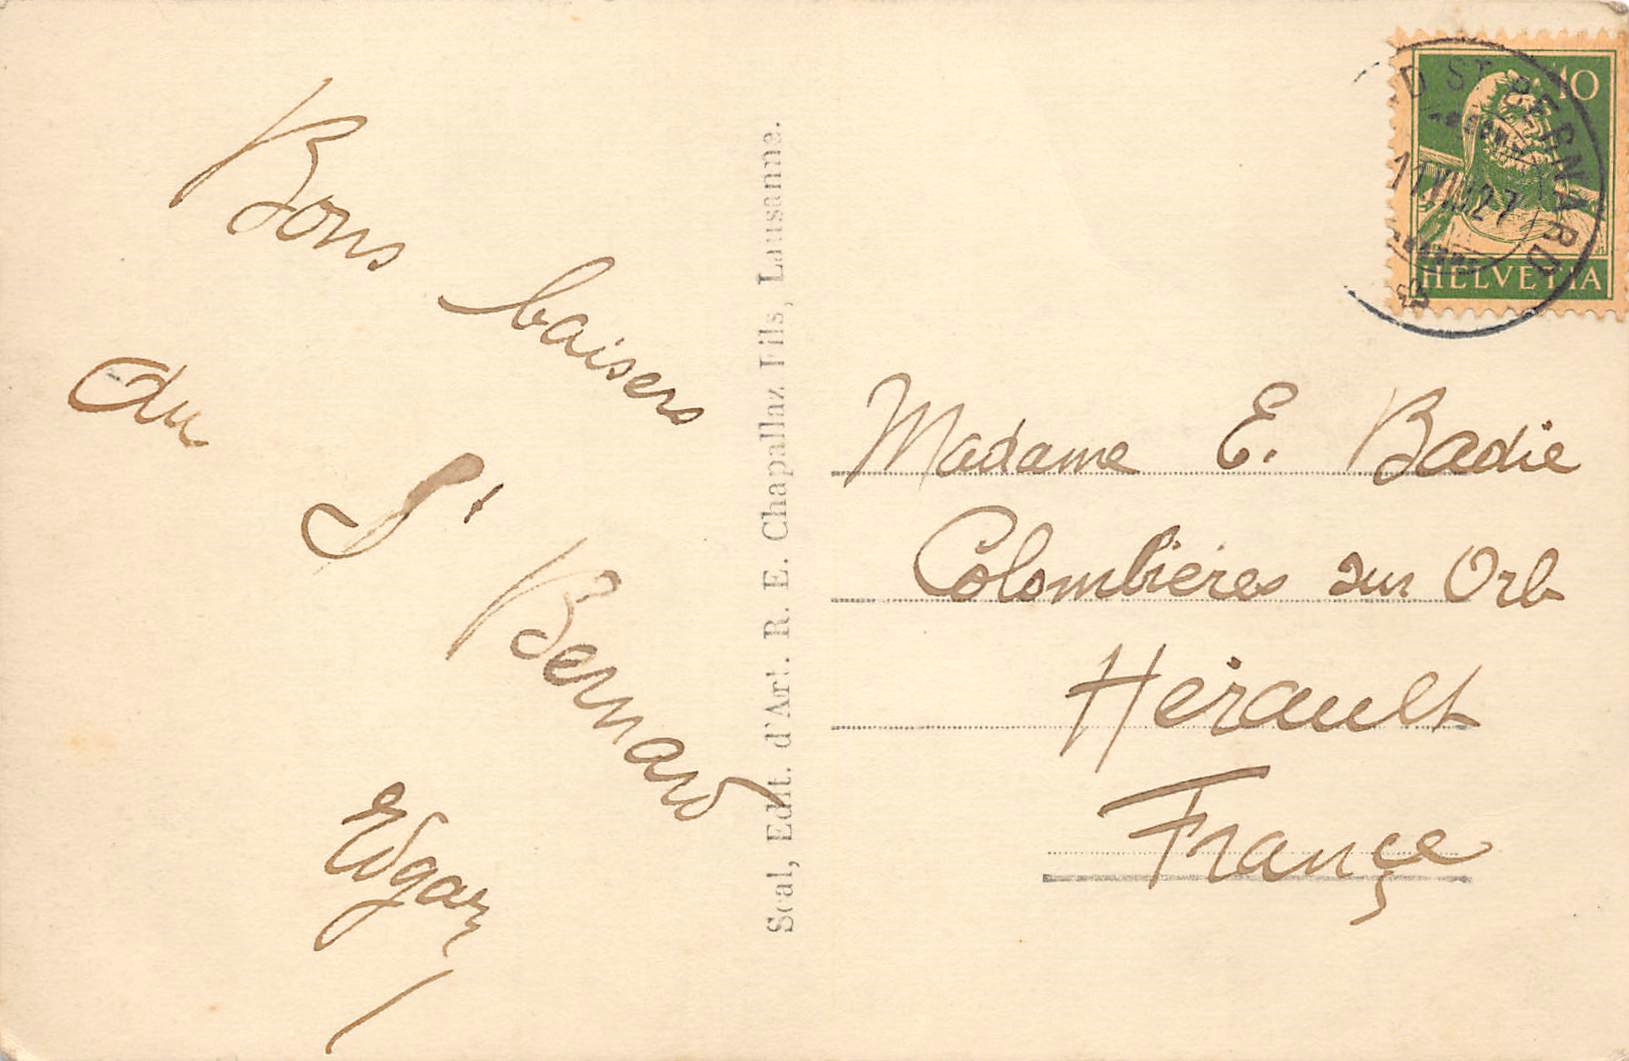 Bons baisers
du St Bernard
Edgar
Scal, Edit. d'Art. R. E. Chapallaz Fils, Lausanne.
D ST BERNARD
11 VIII 27
10
HELVETIA
Madame E. Badie
Colombières sur Orb
Hérault
Françe